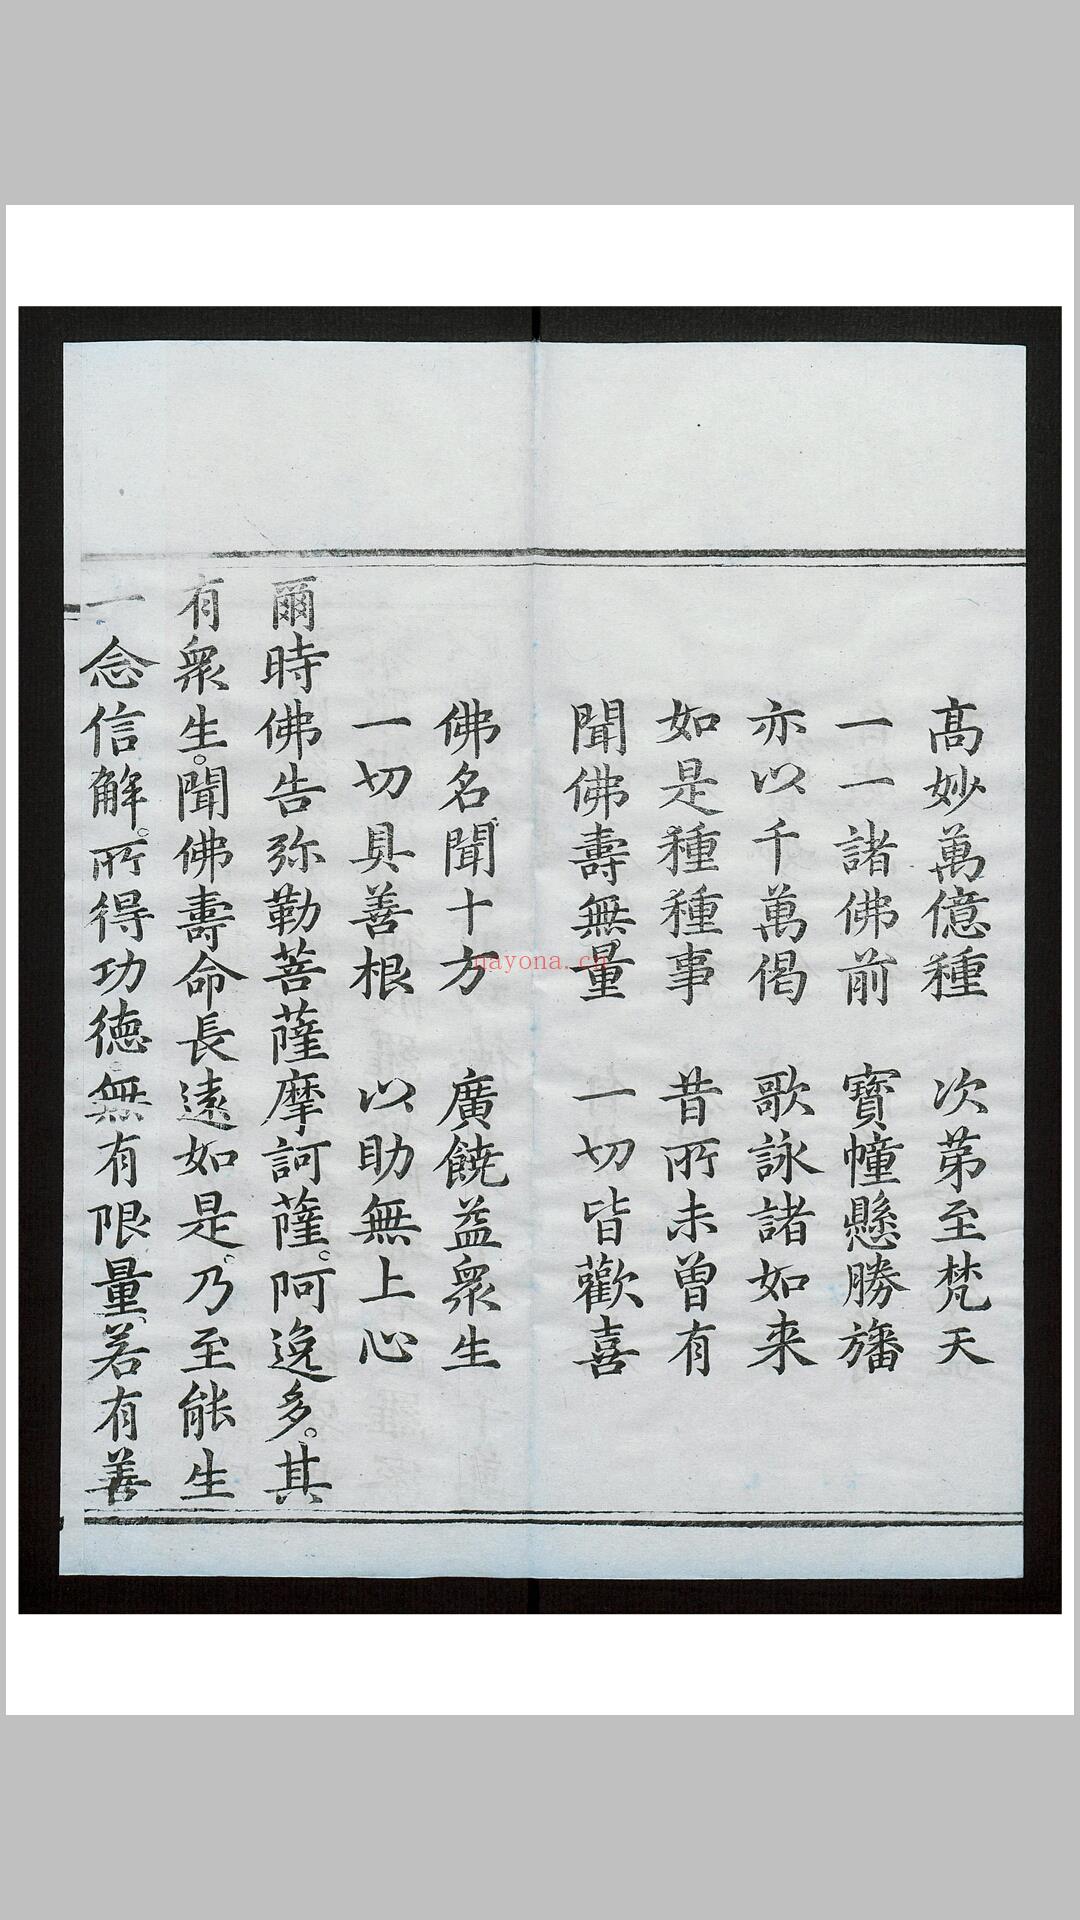 高妙萬億種　次第至梵天
一一諸佛前　寶幢懸勝旛
亦以千萬偈　歌詠諸如来
如是種種事　昔所未曾有
聞佛壽無量　一切皆歡喜
佛名聞十方　廣饒益衆生
一切具善根　以助無上心
爾時佛告弥勒菩薩摩訶薩。阿逸多。其
有衆生。聞佛壽命長遠如是。乃至能生
一念信解。所得功德無有限量。若有善
nayona.cn